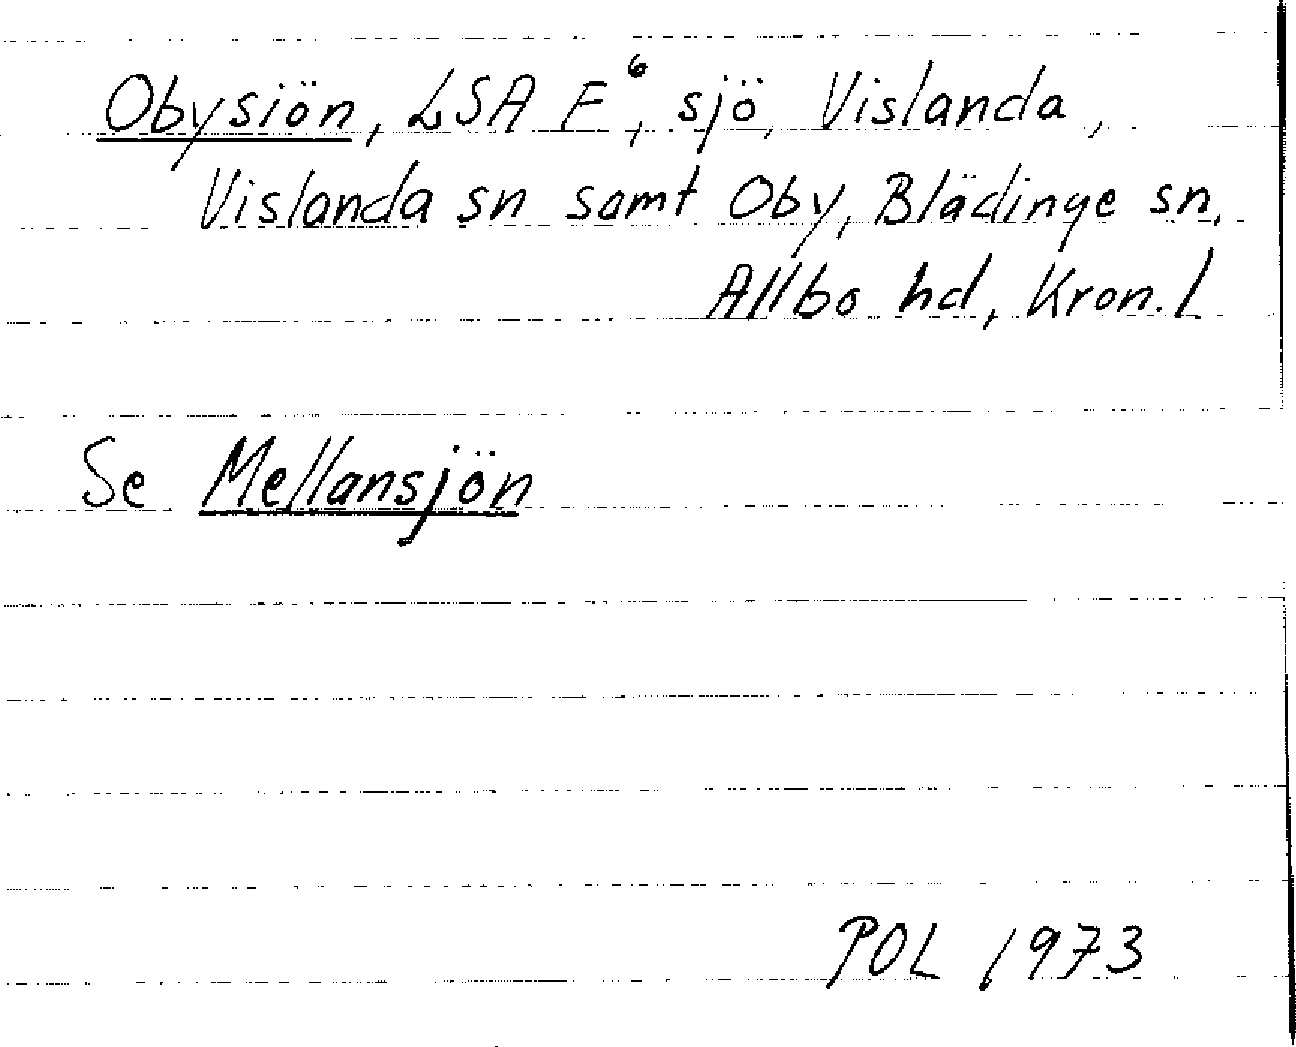 Obysiön, LSA F⁶, sjö, Vislanda,
Vislanda sn samt Oby, Blädinge sn,
Allbo hd, Kron. L
Se Mellansjön
POL 1973